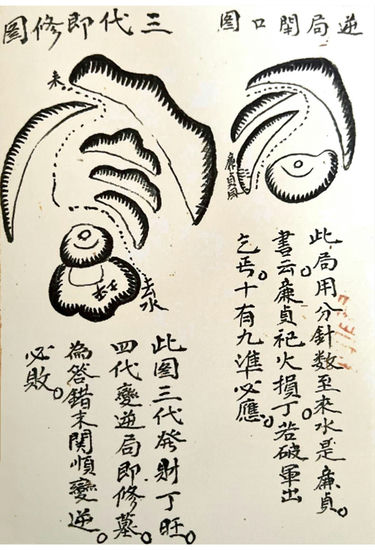 逆局開口圖
廉貞風
此局用分針数至來水是廉貞。
書云。廉貞祀火損丁若破軍出
乞丐。十有九準必應。
三代即修圖
未
去水
此圖三代發財丁旺。
四代變逆局即修墓。
為答錯未関順變逆。
必敗。